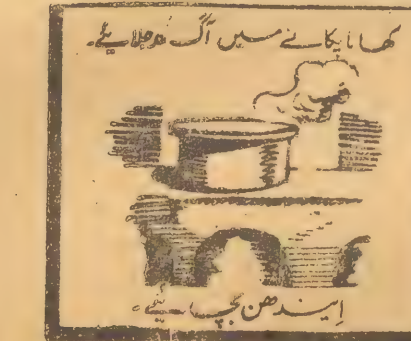 کھانا پکانے میں آگ نہ جلایئے۔
ایندھن بچایئے۔